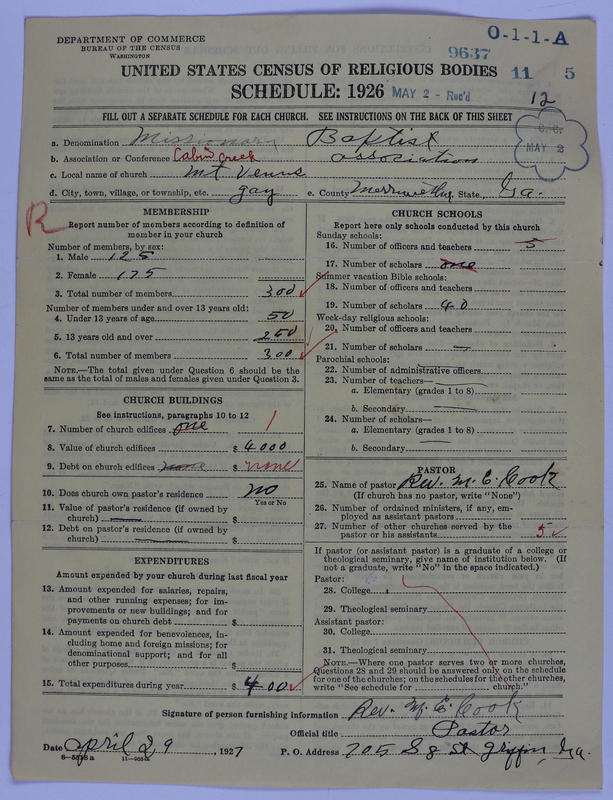 DEPARTMENT OF COMMERCE
BUREAU OF THE CENSUS
WASHINGTON
O-1-1-A
9637
UNITED STATES CENSUS OF RELIGIOUS BODIES 11 5
SCHEDULE: 1926 MAY 2 - Rec'd
12
FILL OUT A SEPARATE SCHEDULE FOR EACH CHURCH. SEE INSTRUCTIONS ON THE BACK OF THIS SHEET
MAY 2
a. Denomination Missionary Baptist
b. Association or Conference Cabin Creek association
c. Local name of church Mt Venus
d. City, town, village, or township, etc. gay e. County Merriwether State, Ga.
R
MEMBERSHIP
Report number of members according to definition of
member in your church
Number of members, by sex:
1. Male 125
2. Female 175
3. Total number of members 300
Number of members under and over 13 years old:
4. Under 13 years of age 50
5. 13 years old and over 250
6. Total number of members 300
NOTE.—The total given under Question 6 should be
same as the total of males and females given under Question 3.
CHURCH BUILDINGS
See instructions, paragraphs 10 to 12
7. Number of church edifices one 1
8. Value of church edifices $ 4000
9. Debt on church edifices none $ none
10. Does church own pastor's residence no
Yes or No
11. Value of pastor's residence (if owned by
church) $
12. Debt on pastor's residence (if owned by
church) $
EXPENDITURES
Amount expended by your church during last fiscal year
13. Amount expended for salaries, repairs,
and other running expenses; for im-
provements or new buildings; and for
payments on church debt $
14. Amount expended for benevolences, in-
cluding home and foreign missions; for
denominational support; and for all
other purposes $
15. Total expenditures during year $ 400
CHURCH SCHOOLS
Report here only schools conducted by this church
Sunday schools:
16. Number of officers and teachers 5
17. Number of scholars one
Summer vacation Bible schools:
18. Number of officers and teachers
19. Number of scholars 40
Week-day religious schools:
20. Number of officers and teachers
21. Number of scholars
Parochial schools:
22. Number of administrative officers
23. Number of teachers—
a. Elementary (grades 1 to 8)
b. Secondary
24. Number of scholars—
a. Elementary (grades 1 to 8)
b. Secondary
PASTOR
25. Name of pastor Rev. M. E. Cook
(If church has no pastor, write "None")
26. Number of ordained ministers, if any, em-
ployed as assistant pastors
27. Number of other churches served by the
pastor or his assistants 5
If pastor (or assistant pastor) is a graduate of a college or
theological seminary, give name of institution below. (If
not a graduate, write "No" in the space indicated.)
Pastor:
28. College
29. Theological seminary
Assistant pastor:
30. College
31. Theological seminary
NOTE.—Where one pastor serves two or more churches,
Questions 28 and 29 should be answered only on the schedule
for one of the churches; on the schedules for the other churches,
write "See schedule for church."
Signature of person furnishing information Rev. M. E. Cook
Official title Pastor
Date april 29, 1927 P. O. Address 705 S 8 St Griffin, Ga.
8—5518 a 11—9034